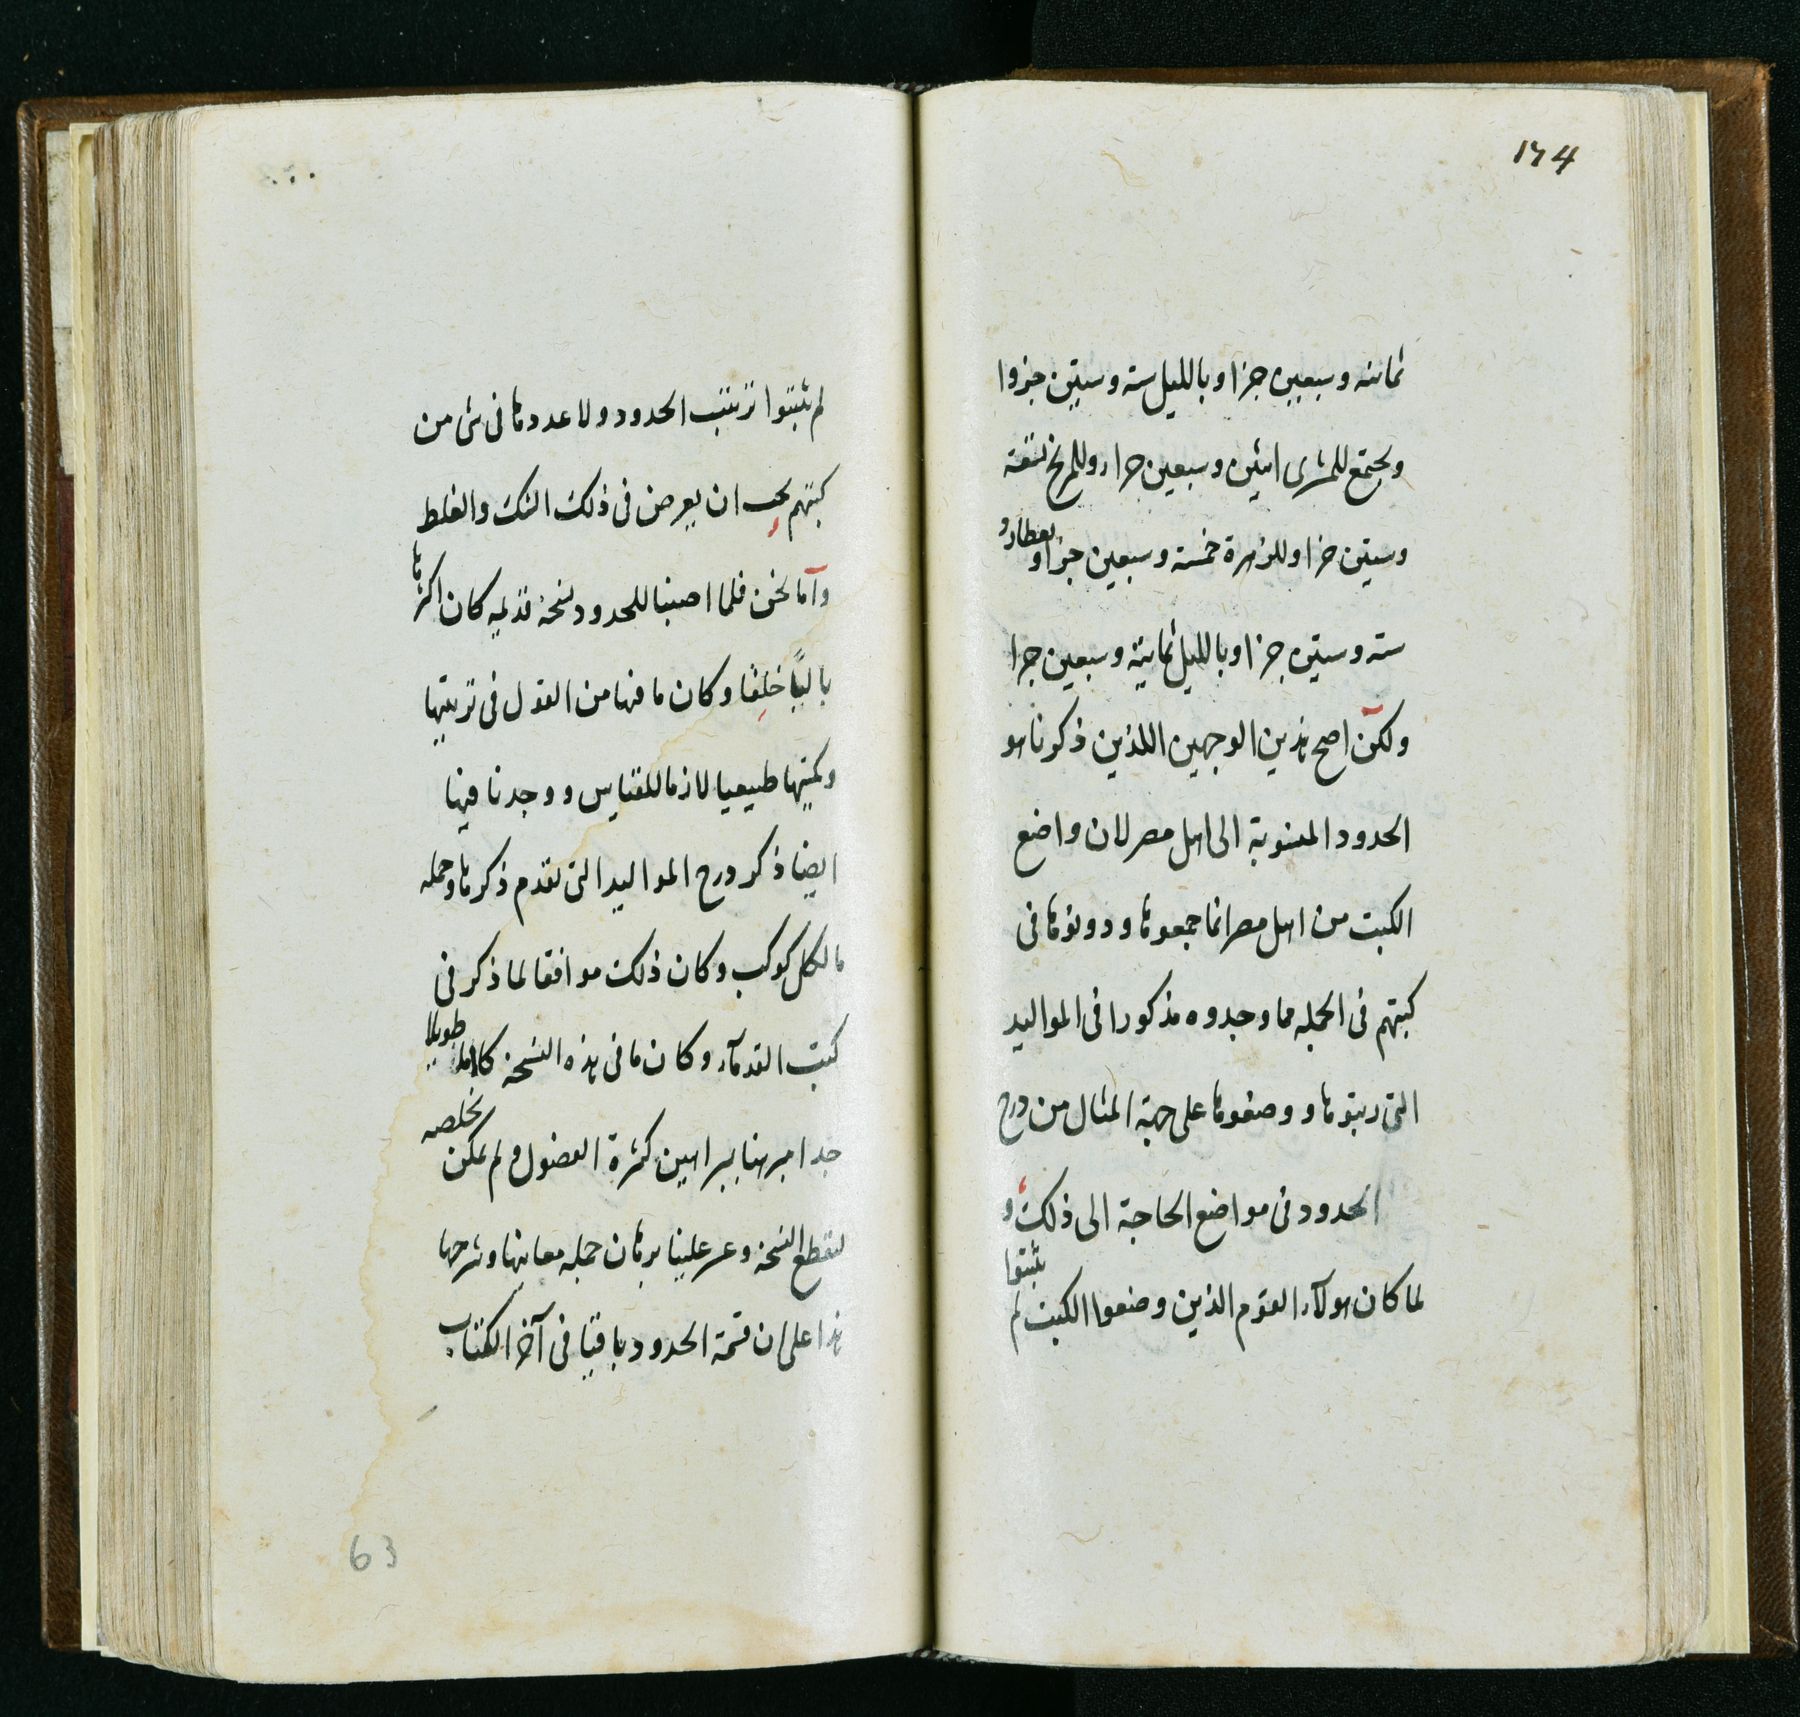 174
ثمانيه وسبعين جزا وبالليل سته وستين جزوا
ويجتمع للمشترى اثنين وسبعين جزاء وللمريخ تسعة
وستين جزا وللزهرة خمسة وسبعين جزا ولعطارد
سته وستين جزا وبالليل ثمانية وسبعين جزا
ولكن اصح هذين الوجهين اللذين ذكرنا هو
الحدود المنسوبة الى اهل مصر لان واضع
الكتب من اهل مصر انما جمعوها ودونوها فى
كتبهم فى الجمله مما وجدوه مذكورا فى المواليد
التى رتبوها ووصفوها على جهة المثال من درج
الحدود فى مواضع الحاجة الى ذلك و
لما كان هولآء القوم الذين وضعوا الكتب لم يثبتوا
لم يثبتوا ترتيب الحدود ولا عددها فى شى من
كتبهم يجب ان يعرض فى ذلك الشك والغلط
وآما نحن فلما اصبنا للحدود نسخة قديمه كان اكثرها
باليًا خلقا وكان ما فيها من القول فى ترتيبها
وكميتها طبيعيا لازما للقياس ووجدنا فيها
ايضا ذكر درج المواليد التى تقدم ذكرها وجمله
ما لكل كوكب وكان ذلك موافقا لما ذكر فى
كتب القدمآء وكان ما فى هذه النسخة كلاما طويلا
جدا مبرهنا ببراهين كثيرة الفضول ولم يمكن تخلصه
لتقطع النسخة وعسر علينا برهان جمله معانيها وشرحها
هذا على ان قسمة الحدود باقيا فى آخر الكتاب
63